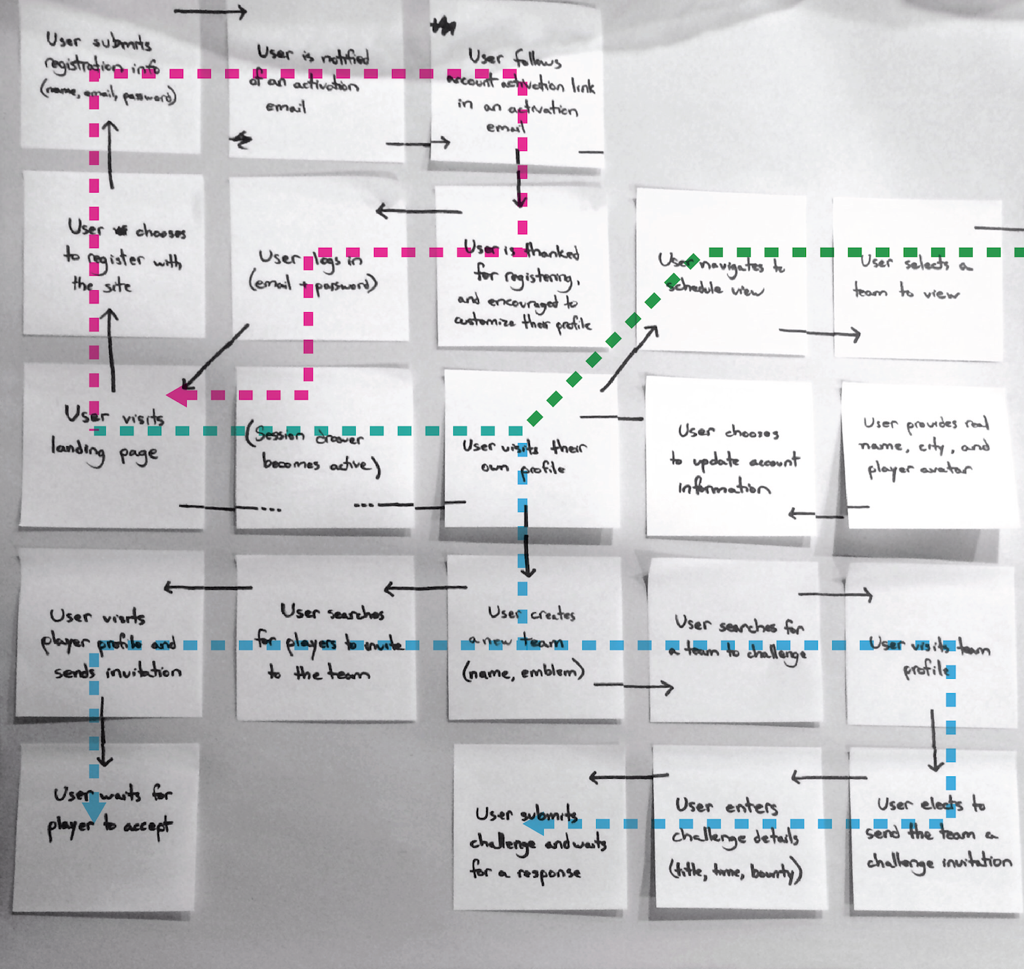 User submits
registration info
(name, email, password)
User is notified
of an activation
email
User follows
account activation link
in an activation
email
User chooses
to register with
the site
User logs in
(email + password)
User is thanked
for registering,
and encouraged to
customize their profile
User navigates to
schedule view
User selects a
team to view
User visits
landing page
(Session drawer
becomes active)
User visits their
own profile
User chooses
to update account
information
User provides real
name, city, and
player avatar
User visits
player profile and
sends invitation
User searches
for players to invite
to the team
User creates
a new team
(name, emblem)
User searches for
a team to challenge
User visits team
profile
User waits for
player to accept
User submits
challenge and waits
for a response
User enters
challenge details
(title, time, bounty)
User elects to
send the team a
challenge invitation